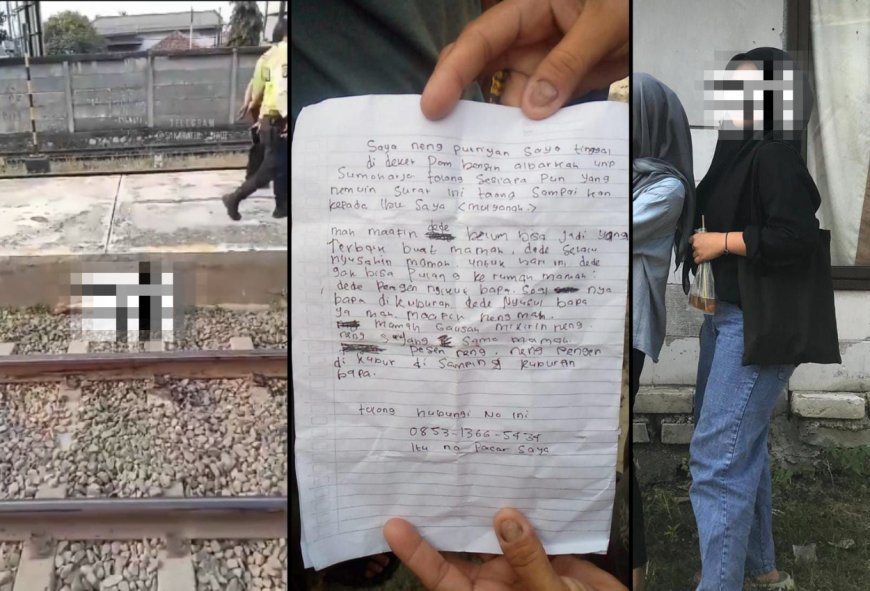 TELEGRAM
Saya neng putriyan saya tinggal
di deket Pom bensin albarkah
Sumoharjo tolong Sesiapa Pun yang
nemuin Surat ini tolong Sampai kan
kepada Ibu Saya
mah maafin dede belum bisa jadi yang
Terbaik buat mamah, dede Selalu
nyusahin mamah, untuk hari ini dede
gak bisa Pulang ke rumah mamah.
dede Pengen nyusul bapa. nya
bapa di kuburan dede Nyusul bapa
ya mah. maafin neng mah.
mamah Gausah mikirin neng.
neng Sama mamah.
Pesen neng, neng Pengen
di kubur di Samping kuburan
bapa.
tolong hubungi No ini
0853-1366-5434
Itu no Pacar Saya